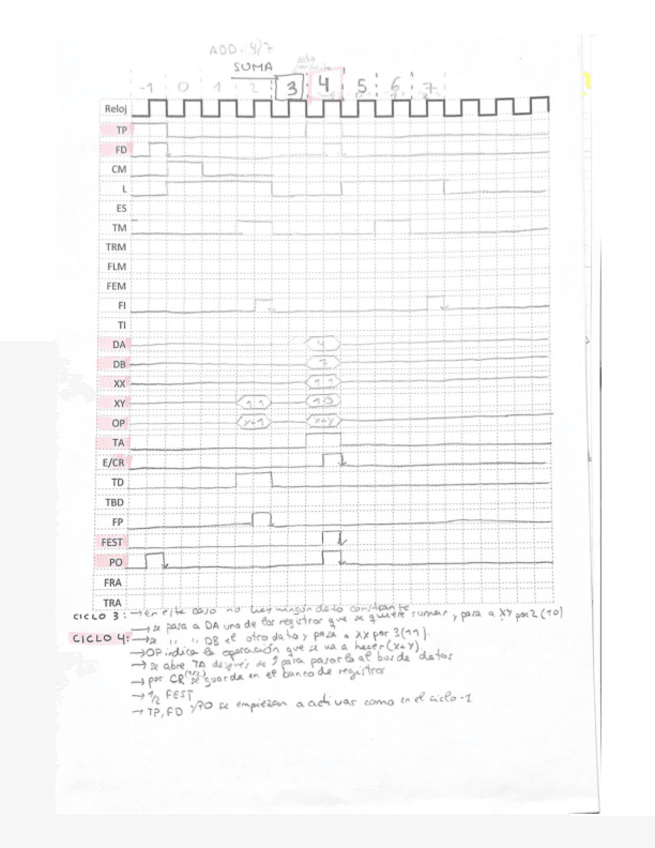 ADD 4/7
SUMA
-1 0 1 2 3 4 5 6 7
Reloj
TP
FD
CM
L
ES
TM
TRM
FLM
FEM
FI
TI
DA 4
DB 7
XX 11
XY 11 10
OP x+1 x+y
TA
E/CR
TD
TBD
FP
FEST
PO
FRA
TRA
CICLO 3: → en este caso no hay ningún dato constante
CICLO 4: → se pasa a DA uno de los registros que se quiere sumar, y pasa a XY por 2 (10)
→ " " " DB el otro dato y pasa a XX por 3 (11).
→ OP indica la operación que se va a hacer (x+y)
→ se abre TA después de para pasarlo al bus de datos
→ por CR (1/2) se guarda en el banco de registros
→ 1/2 FEST
→ TP, FD y PO se empiezan a activar como en el ciclo -1